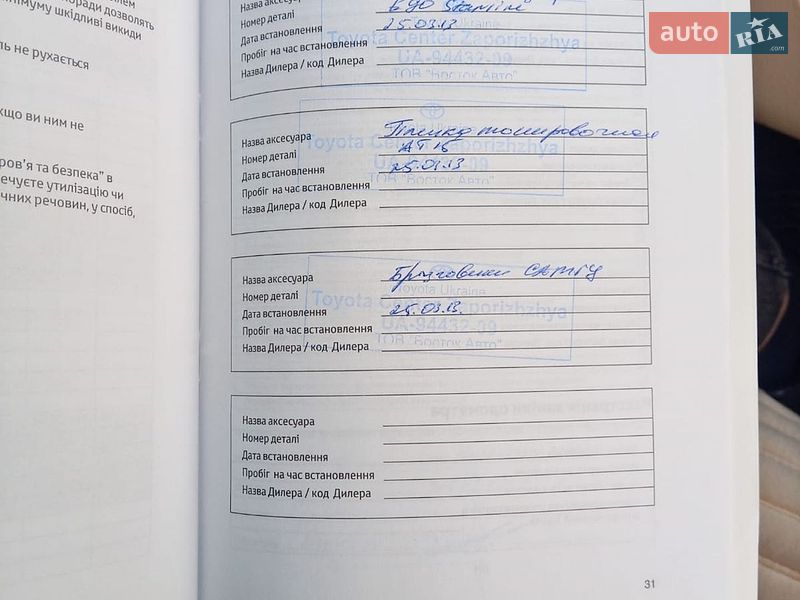 лем
поради дозволять
німуму шкідливі викиди
ль не рухається
кщо ви ним не
ров’я та безпека" в
ечуєте утилізацію чи
чних речовин, у спосіб,
Назва аксесуара
Номер деталі
Дата встановлення 25.03.13
Пробіг на час встановлення
Назва Дилера / код Дилера
Ukraine
Toyota Center Zaporizhzhya
UA-94432-09
ТОВ "Восток Авто"
auto RIA .com
Назва аксесуара Пленка тонировочная
Номер деталі
Дата встановлення 25.03.13
Пробіг на час встановлення
Назва Дилера / код Дилера
Toyota Ukraine
Toyota Center Zaporizhzhya
UA-94432-09
ТОВ "Восток Авто"
Назва аксесуара Брызговики
Номер деталі
Дата встановлення 25.03.13.
Пробіг на час встановлення
Назва Дилера / код Дилера
Toyota Ukraine
Toyota Center Zaporizhzhya
UA-94432-09
ТОВ "Восток Авто"
Назва аксесуара
Номер деталі
Дата встановлення
Пробіг на час встановлення
Назва Дилера / код Дилера
31